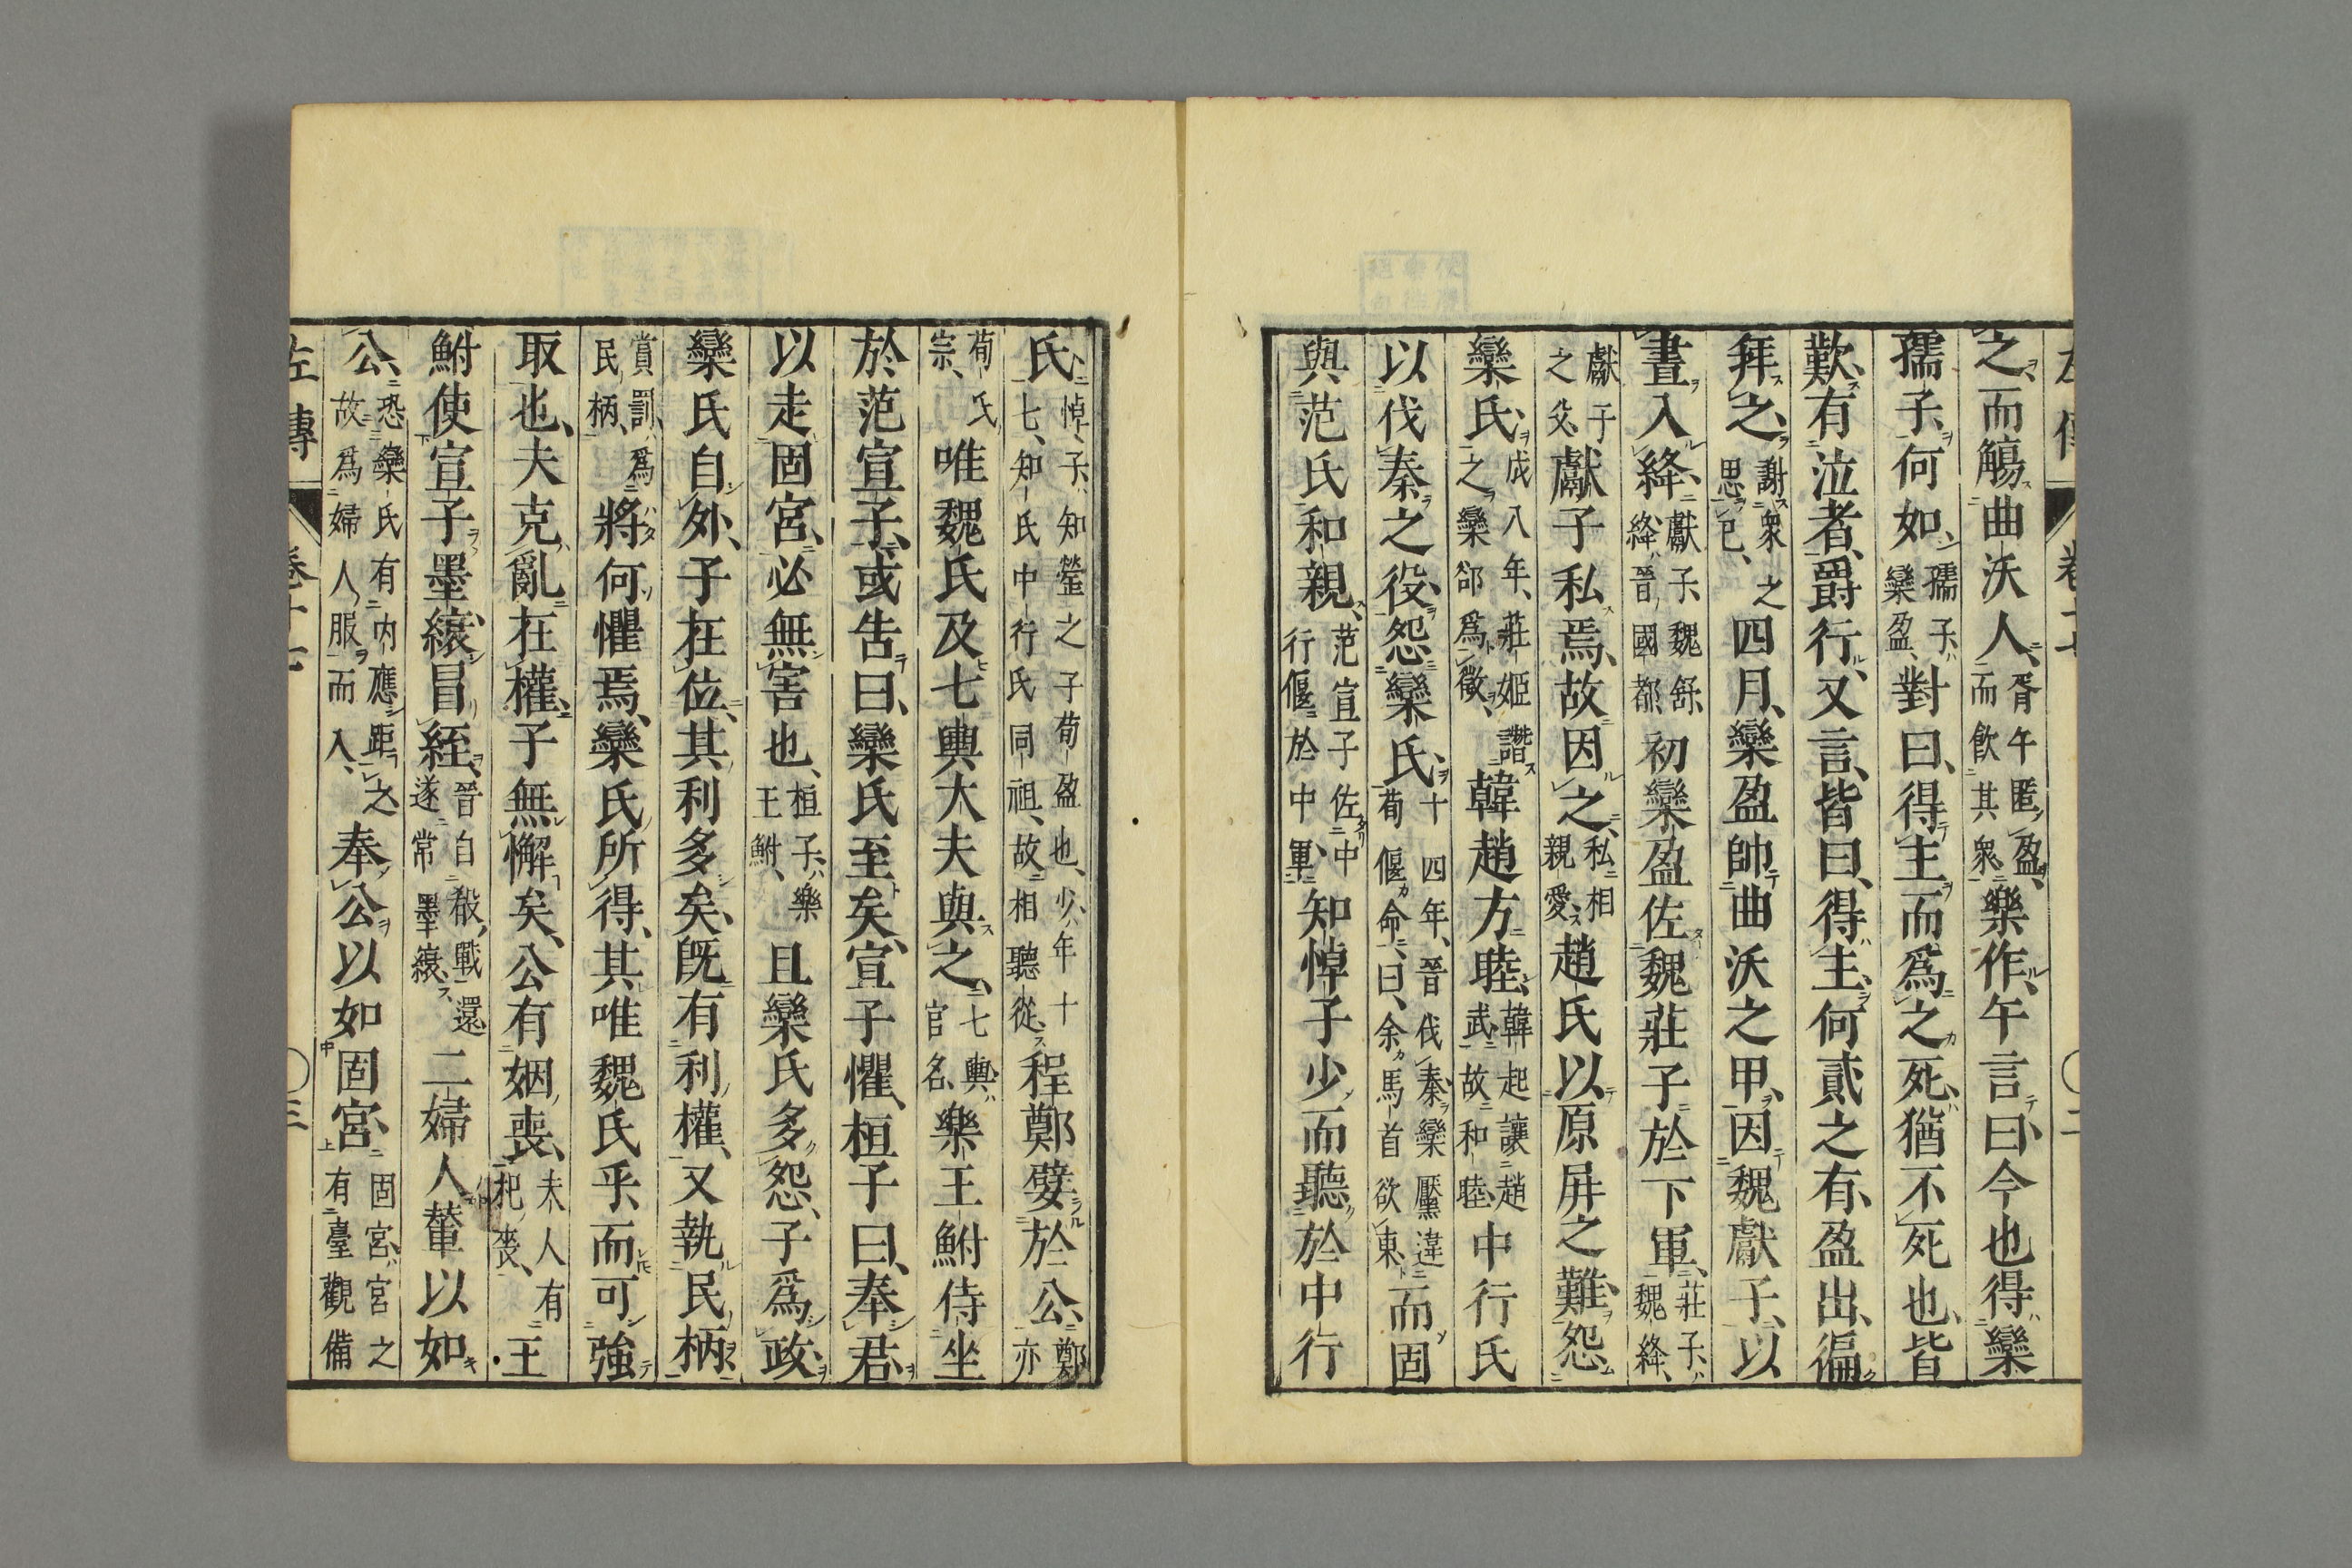 之而觴曲沃人胥午匿盈而飲其衆樂作午言曰今也得欒
孺子何如孺子欒盈對曰得主而爲之死猶不死也皆
歎有泣者爵行又言皆曰得主何貳之有盈出徧
拜之謝衆之思已四月欒盈帥曲沃之甲因魏獻子以
晝入絳獻子魏舒絳晉國都初欒盈佐魏莊子於下軍莊子魏絳
獻子之父獻子私焉故因之私相親愛趙氏以原屏之難怨
欒氏成八年莊姬譖之欒郤爲徵韓趙方睦韓起讓趙武故和睦中行氏
以伐秦之役怨欒氏十四年晉伐秦欒黶違荀偃命曰余馬首欲東而固
與范氏和親范宣子佐中行偃於中軍知悼子少而聽於中行
氏悼子知罃之子荀盈也少年十七知氏中行氏同祖故相聽從程鄭嬖於公鄭亦
荀氏宗唯魏氏及七輿大夫與之七輿官名樂王鮒侍坐
於范宣子或告曰欒氏至矣宣子懼桓子曰奉君
以走固宮必無害也桓子樂王鮒且欒氏多怨子爲政
欒氏自外子在位其利多矣旣有利權又執民柄
賞罰爲民柄將何懼焉欒氏所得其唯魏氏乎而可強
取也夫克亂在權子無懈矣公有姻喪夫人有杞喪王
鮒使宣子墨縗冒絰晉自殽戰還遂常墨縗二婦人輦以如
公恐欒氏有内應距之故爲婦人服而入奉公以如固宮固宮宮之有臺觀備
左傳 卷十七 〇三